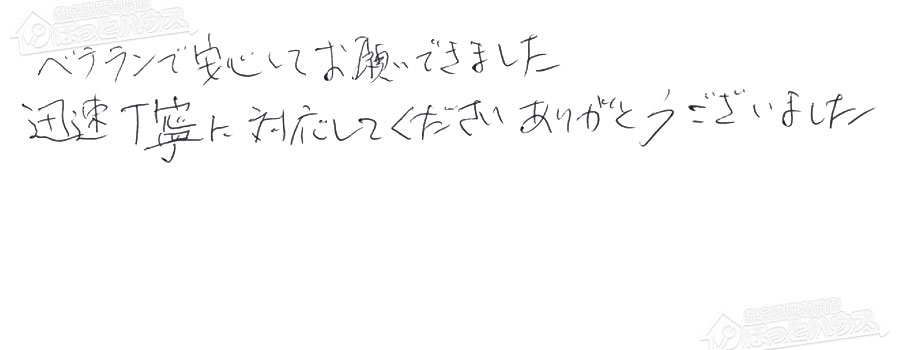 ベテランで安心してお願いできました
迅速丁寧に対応してくださいありがとうございました
ほっとハウス
ほっとハウス